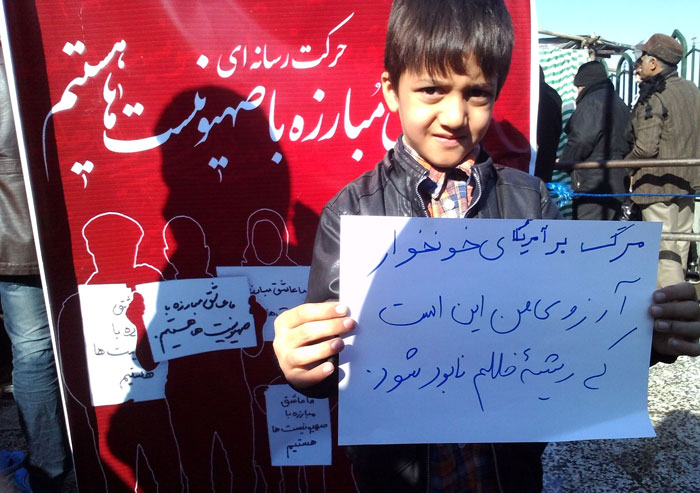 حرکت رسانه ای
مبارزه با صهیونیست ها هستیم
مرگ بر آمریکای خونخوار
آرزوی من این است
که ریشهٔ ظلم نابود شود.
ما عاشق مبارزه با
صهیونیست ها هستیم.
ما عاشق مبار
عاشق
ره با
ست ها
هستیم
ما عاشق
مبارزه با
صهیونیست ها
هستیم